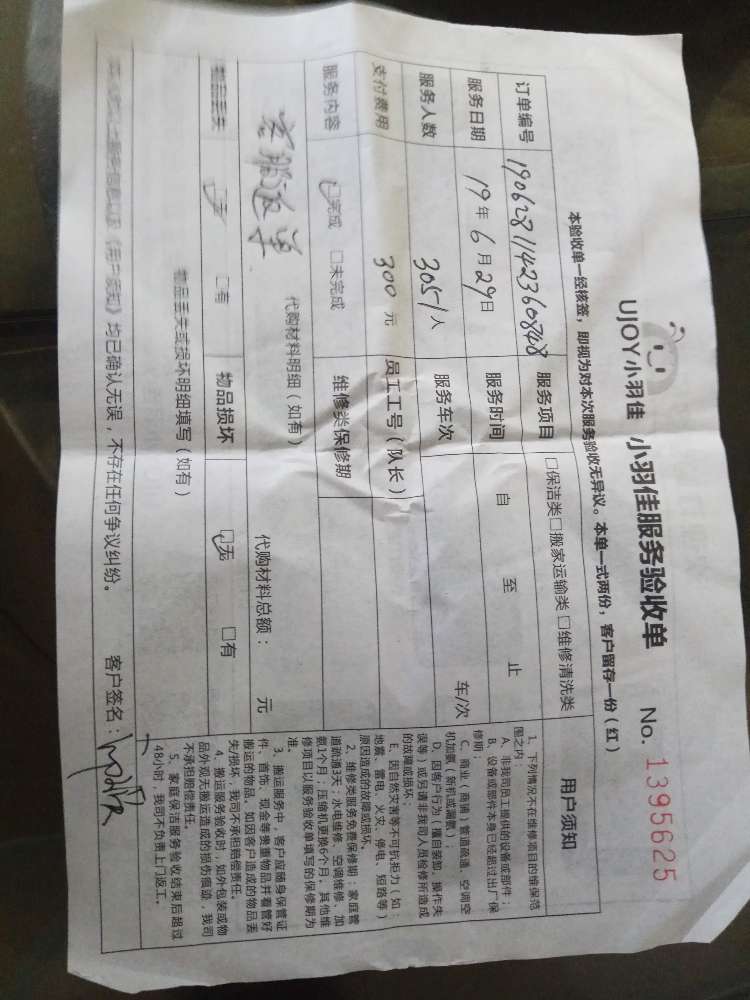 UJOY小羽佳 小羽佳服务验收单 No. 1395625
本验收单一经核签，即视为对本次服务验收无异议。本单一式两份，客户留存一份（红）
订单编号 1906281142360848 服务项目 □保洁类□搬家运输类□维修清洗类
服务日期 19年6月29日 服务时间 自 至 止
服务人数 3051人 服务车次 车/次
支付费用 300元 员工工号（队长）
服务内容 □完成 □未完成 维修类保修期
代购材料明细（如有） 代购材料总额： 元
客服返单
物品丢失 □无 □有 物品损坏 □无 □有
物品丢失或损坏明细填写（如有）
《用户须知》均已确认无误，不存在任何争议纠纷。 客户签名：
用户须知
1、下列情况不在维修项目的维保范
围之内：
A、非我司员工提供的设备或部件；
B、设备或部件本身已经超过出厂保
修期；
C、商业（商铺）管道疏通、空调空
机加氟（新机或漏氟）；
D、因客户行为（擅自装卸、操作失
误等）或另请非我司人员维修所造成
的故障或损坏；
E、因自然灾害等不可抗拒力（如：
地震、雷电、火灾、停电、短路等）
原因造成的故障或损坏。
2、维修类服务免费保修期：家庭管
道疏通3天；水电维修、空调维修、加
氨1个月；压缩机更换6个月，其他维
修项目以服务验收单填写的保修期为
准。
3、搬运服务中，客户应随身保管证
件、首饰、现金等贵重物品并看管好
搬运的物品。如因客户造成的物品丢
失/损坏，我司不承担赔偿责任。
4、搬运服务验收时，如外包装或物
品外观无搬运造成的损伤痕迹，我司
不承担赔偿责任。
5、家庭保洁服务验收结束后超过
48小时，我司不负责上门返工。